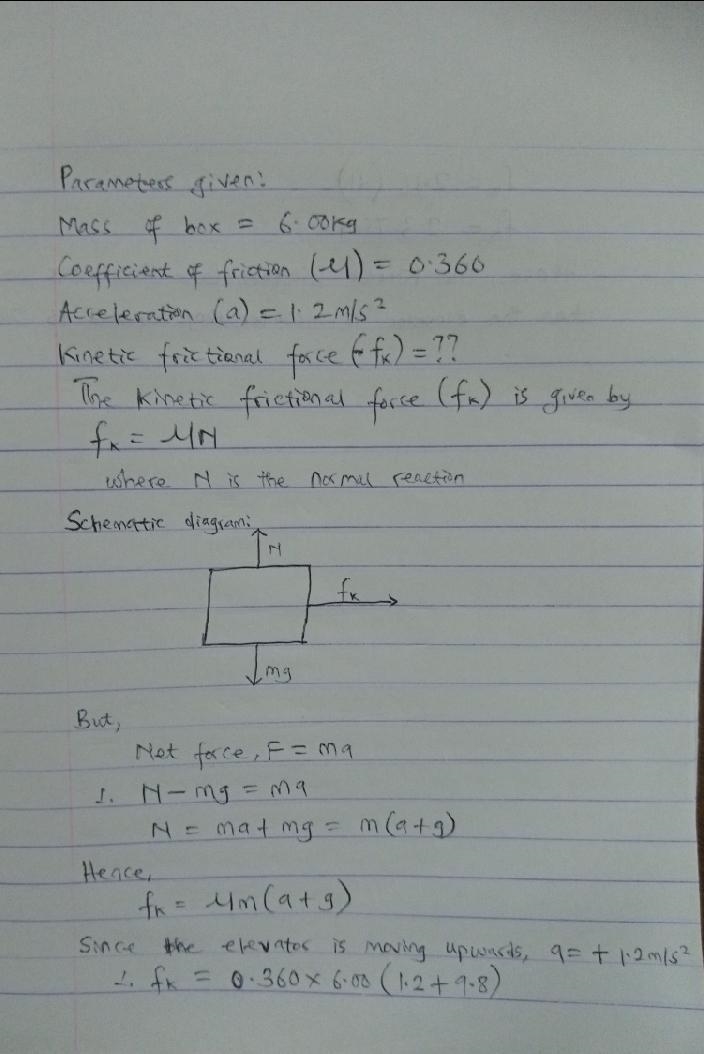 Parameters given:
Mass of box = 6.00kg
Coefficient of friction (μ) = 0.360
Acceleration (a) = 1.2m/s²
Kinetic frictional force (fk) = ??
The Kinetic frictional force (fk) is given by
fk = μN
where N is the normal reaction
Schematic diagram:
N
fk
mg
But,
Net force, F = ma
∴ N - mg = ma
N = ma + mg = m(a+g)
Hence,
fk = μm(a+g)
Since the elevator is moving upwards, a = + 1.2m/s²
∴ fk = 0.360 × 6.00 (1.2 + 9.8)